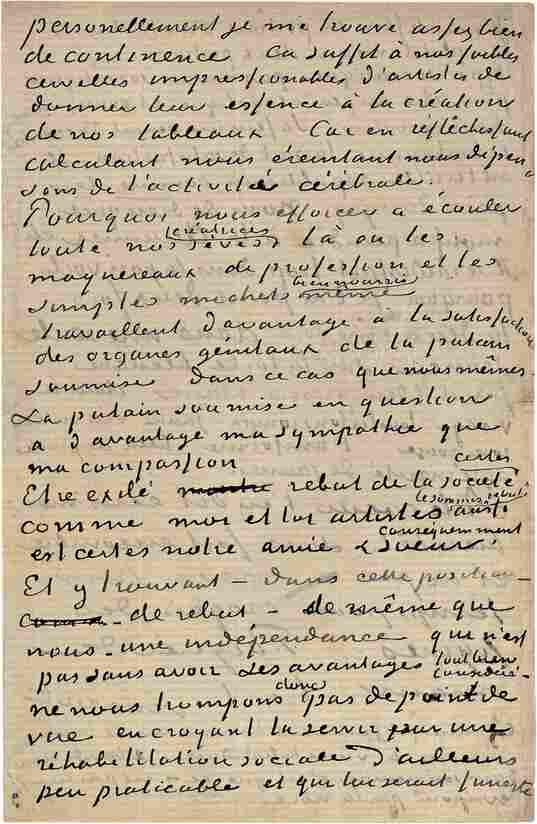 personellement je me trouve assez bien
de continence Ca suffit à nos faibles
cervelles impressionables d'artistes de
donner leur essence à la création
de nos tableaux Car en réfléchissant
calculant nous éreintant nous dépen
sons de l'activité cérébrale.
Pourquoi nous efforcer à écouler
créatrices
toute nos sèves là où les
maquereaux de profession et les
bien nourris
simples michets même
travaillent d'avantage à la satisfaction
des organes génitaux de la putain
soumise dans ce cas que nous mêmes.
La putain soumise en question
a d'avantage ma sympathie que
ma compassion
certes
Etre exilé rebut de la société
comme moi et toi artistes le sommes aussi
consequemment
est certes notre amie & soeur.
Et y trouvant – dans cette position –
– de rebut – de même que
nous – une indépendance qui n'est
pas sans avoir ses avantages tout bien
considéré –
donc
ne nous trompons pas de point de
vue en croyant la servir par une
réhabilitation sociale d'ailleurs
peu praticable et qui lui serait funeste